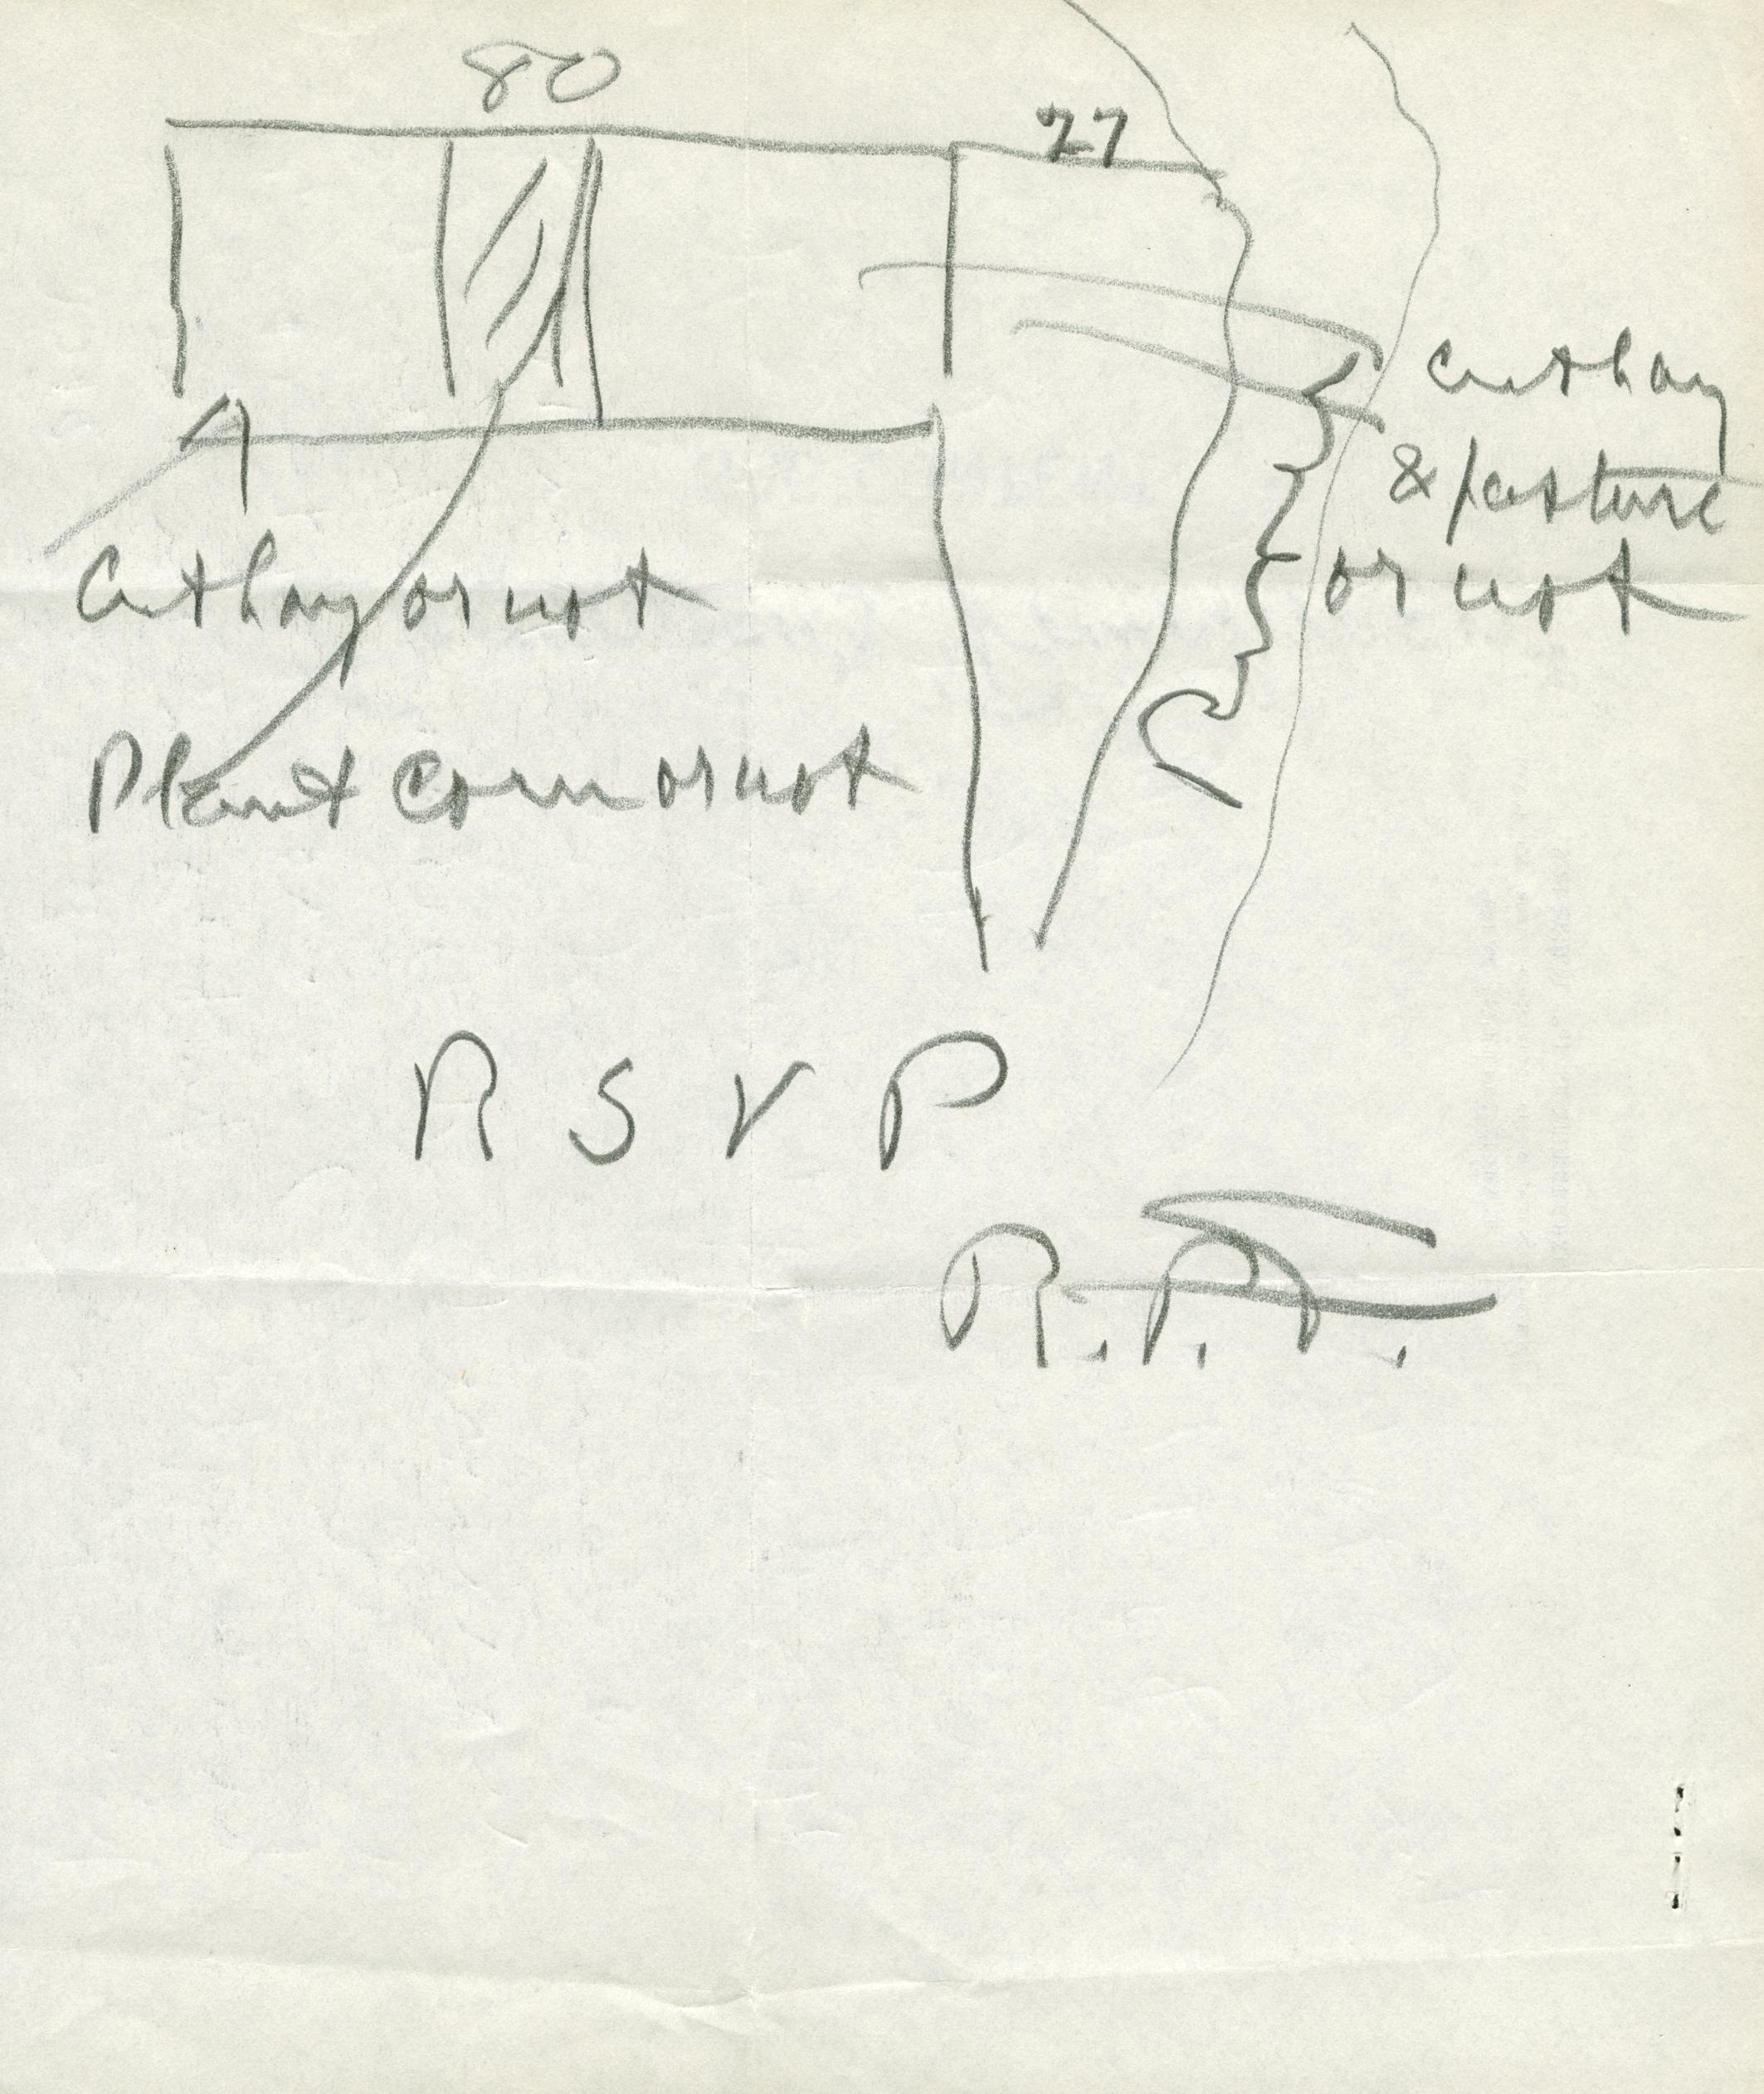 80
27
Cut hay
& pasture
or not
Cut hay or not
Plant Corn or not
R S V P
R. P. T.